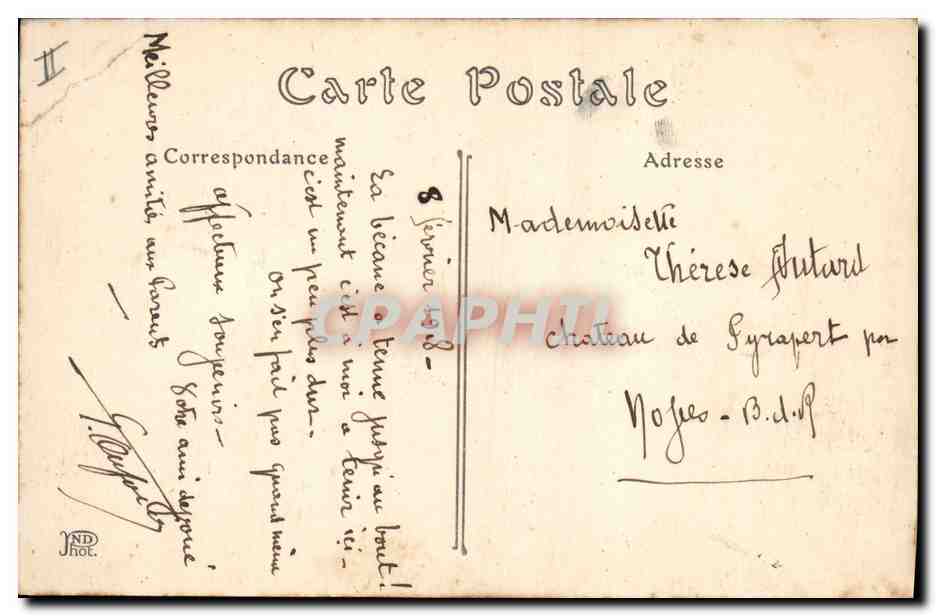 II
Carte Postale
Correspondance
Adresse
8 Février 1918 -
La bécane a tenue jusqu'au bout !
maintenant c'est à moi a tenir ici -
c'est un peu plus dur -
on s'en fait pas quand même
affectueux souvenirs -
Votre ami dévoué
Meilleures amitiés aux Parents
Mademoiselle
Thérese Autard
Chateau de par
Noves - B.d.R
CPAPHTI
ND
Phot.